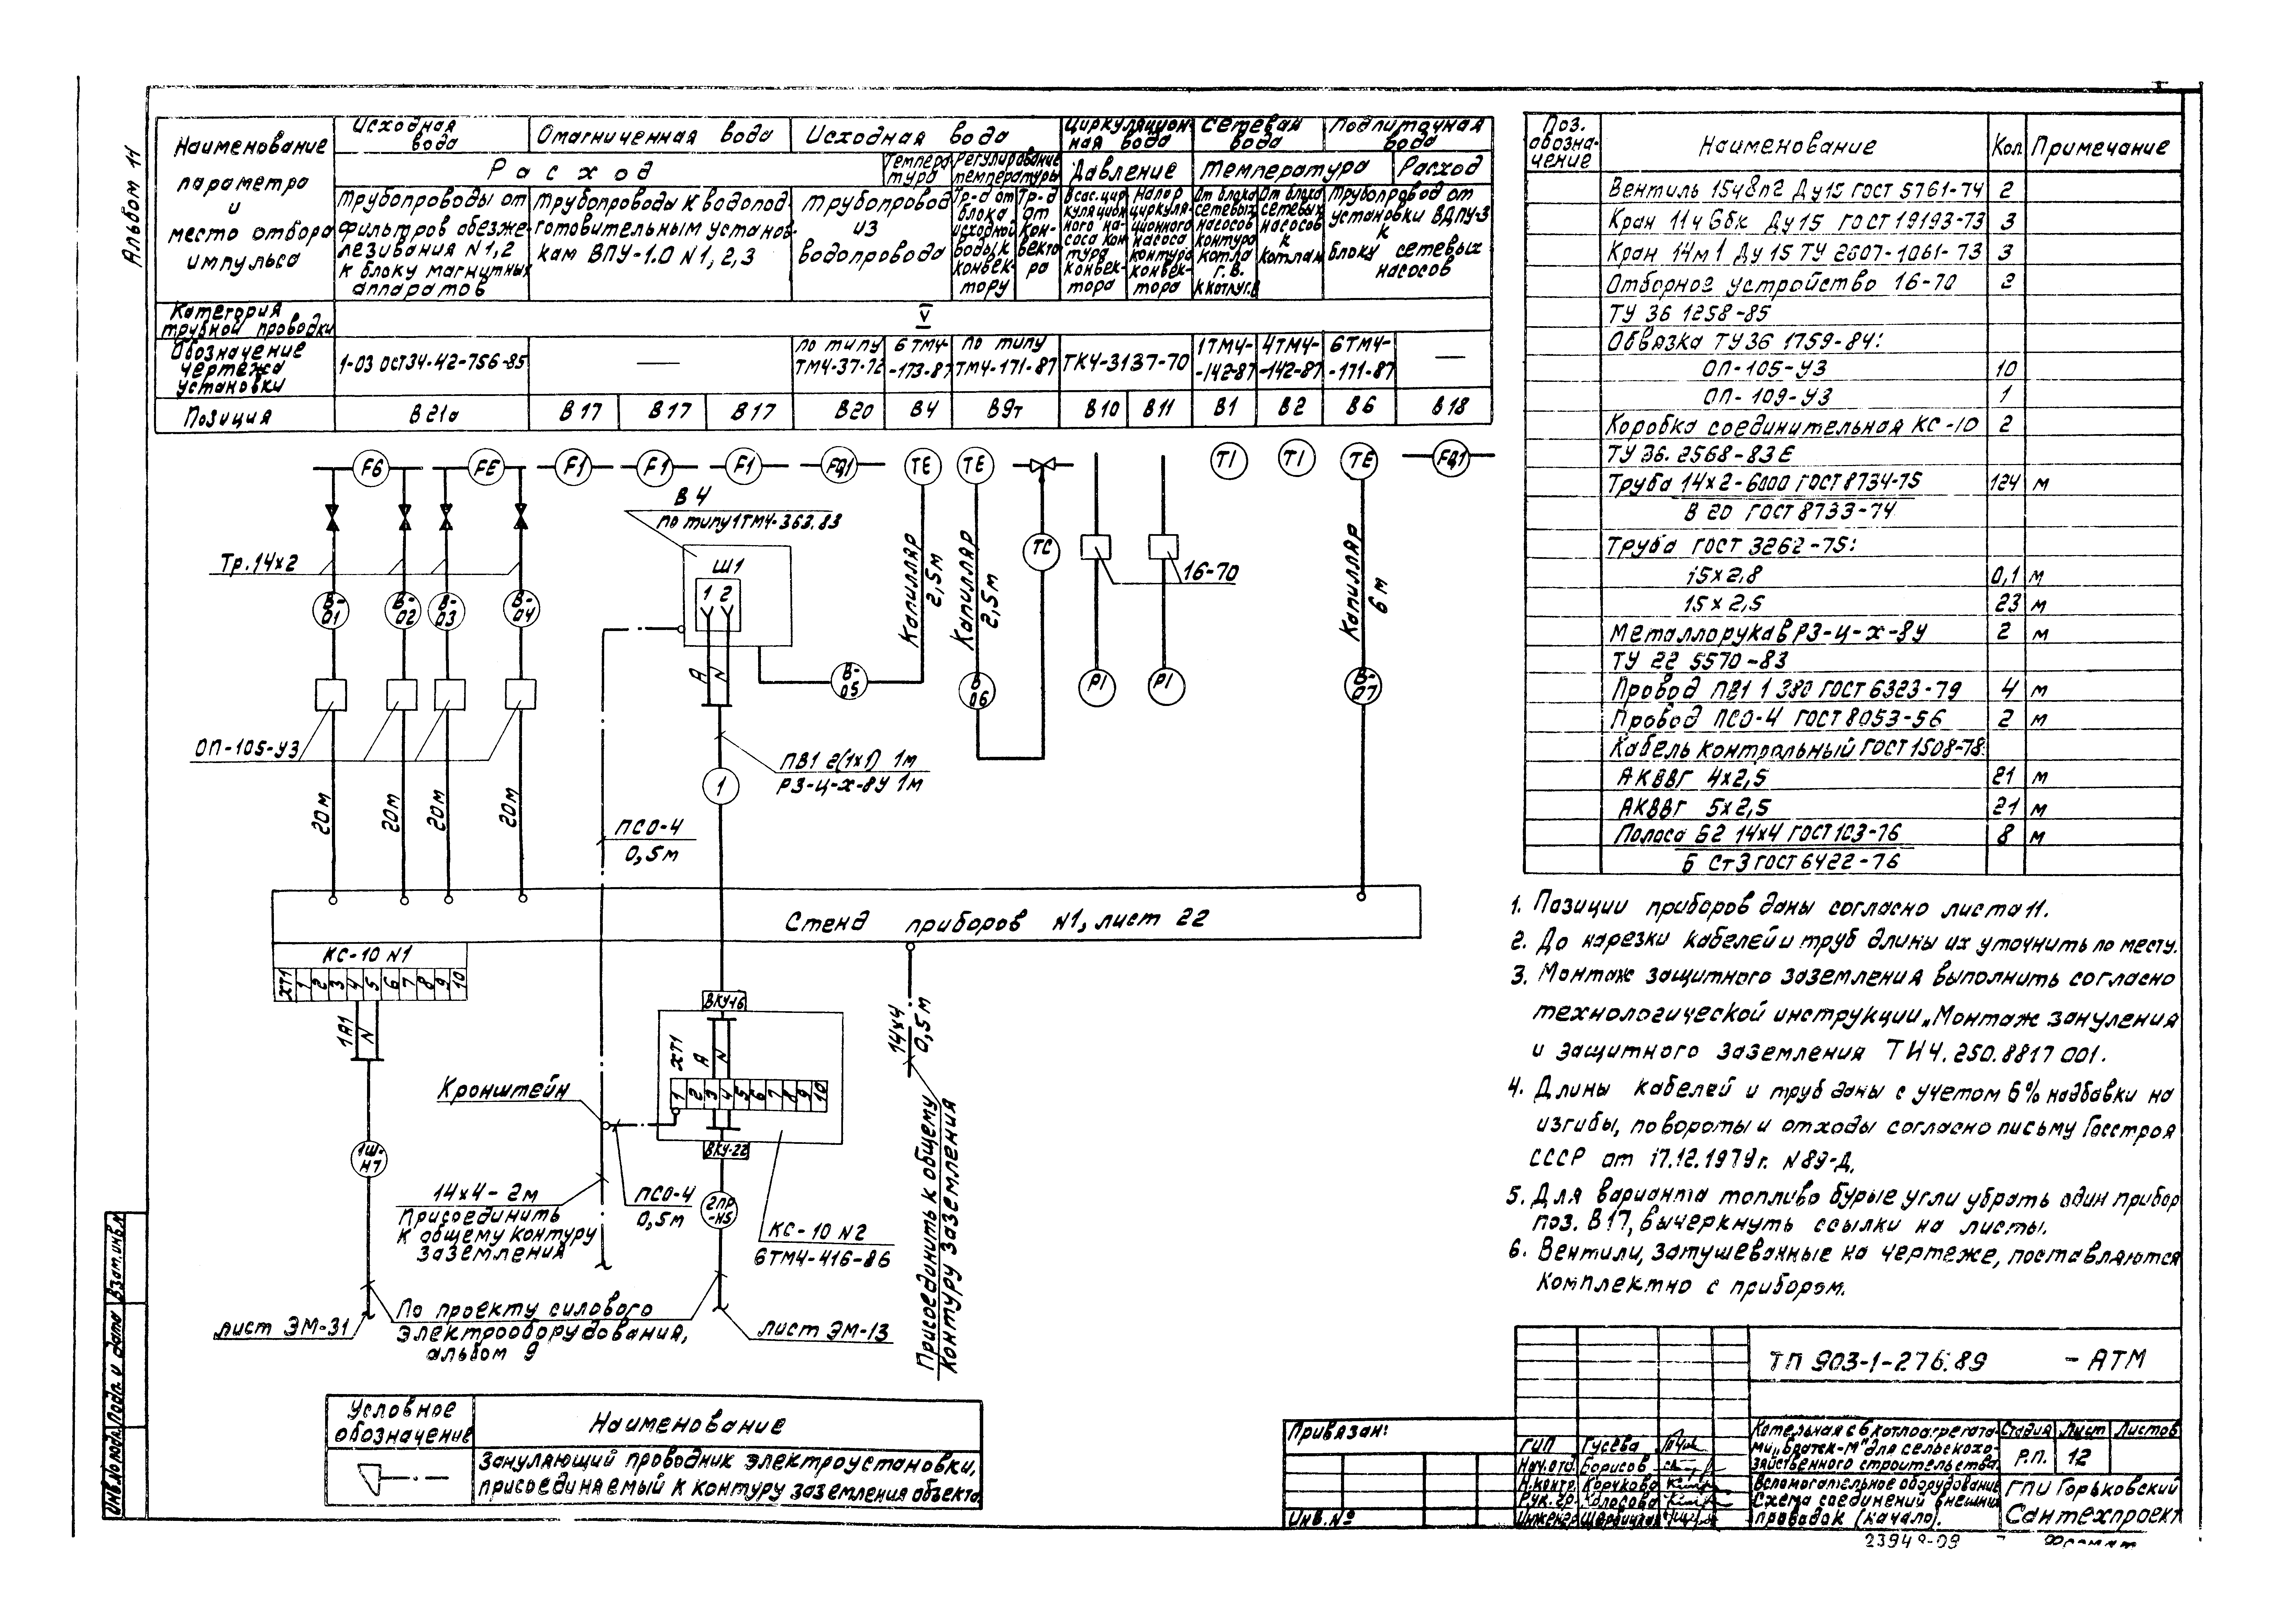 Альбом 11
Наименование
параметра
и
место отбора
импульса
Исходная
вода
Омагниченная вода
Исходная вода
Циркуляцион-
ная вода
Сетевая
вода
Подпиточная
вода
Расход
Темпера
тура
Регулирование
температуры
Давление
Температура
Расход
Трубопроводы от
фильтров обезже-
лезивания N1,2
к блоку магнитных
аппаратов
Трубопроводы к водопод-
готовительным установ-
кам ВПУ-1.0 N1, 2, 3
Трубопровод
из
водопровода
Тр-д от
блока
исходной
воды к
конвек-
тору
Тр-д
от
кон-
векто-
ра
Всас. цир
куляцион
ного на-
соса кон
тура
конвек-
тора
Напор
циркуля-
ционного
насоса
контура
конвек-
тора
От блока
сетевых
насосов
контура
котла
г.в.
к котлу г.в
От блока
сетевых
насосов
к
котлам
Трубопровод от
установки ВДПУ-3
к
блоку сетевых
насосов
Категория
трубной проводки
V
Обозначение
чертежа
установки
1-03 ОСТ34-42-756-85
—
по типу
ТМ4-37-72
6ТМ4-
-173-87
по типу
ТМ4-171-87
ТК4-3137-70
1ТМ4-
-142-87
4ТМ4-
-142-87
6ТМ4-
-171-87
—
Позиция
В21а
В17
В17
В17
В20
В4
В9т
В10
В11
В1
В2
В6
В18
F6
FE
F1
F1
F1
FQ1
TE
TE
TI
TI
TE
FQ1
В4
по типу 1ТМ4-363.83
Ш1
1 2
А
N
Тр.14х2
В-
01
В-
02
В-
03
В-
04
В-
05
В
06
В-
07
TC
16-70
PI
PI
Капилляр
2,5м
Капилляр
2,5м
Капилляр
6м
ОП-105-У3
20м
20м
20м
20м
ПВ1 2(1х1) 1м
РЗ-Ц-Х-8У 1м
1
ПСО-4
0,5м
Стенд приборов N1, лист 22
КС-10 N1
ХТ1 1 2 3 4 5 6 7 8 9 10
1А1
N
1Ш-
Н7
ВКУ-16
ХТ1
А
N
1 2 3 4 5 6 7 8 9 10
ВКУ-22
2ПР
-Н5
Кронштейн
14х4-2м
Присоединить
к общему контуру
заземления
ПСО-4
0,5м
КС-10 N2
6ТМ4-416-86
14х4
0,5м
Присоединить к общему
контуру заземления
лист ЭМ-31
По проекту силового
электрооборудования,
альбом 9
лист ЭМ-13
Условное
обозначение
Наименование
Зануляющий проводник электроустановки,
присоединяемый к контуру заземления объекта.
Поз.
обозна-
чение
Наименование
Кол.
Примечание
Вентиль 15ч8п2 Ду15 ГОСТ 5761-74 2
Кран 11ч6бк Ду15 ГОСТ 19193-73 3
Кран 14м1 Ду15 ТУ 2607-1061-73 3
Отборное устройство 16-70 2
ТУ 36 1258-85
Обвязка ТУ36 1759-84:
ОП-105-У3 10
ОП-109-У3 1
Коробка соединительная КС-10 2
ТУ 36. 2568-83Е
Труба 14х2-6000 ГОСТ 8734-75 124 м
В 20 ГОСТ 8733-74
Труба ГОСТ 3262-75:
15х2,8 0,1 м
15х2,5 23 м
Металлорукав РЗ-Ц-Х-8У 2 м
ТУ 22 5570-83
Провод ПВ1 1 380 ГОСТ 6323-79 4 м
Провод ПСО-4 ГОСТ 8053-56 2 м
Кабель контрольный ГОСТ 1508-78
АКВВГ 4х2,5 21 м
АКВВГ 5х2,5 21 м
Полоса Б2 14х4 ГОСТ 103-76 8 м
Б Ст3 ГОСТ 6422-76
1. Позиции приборов даны согласно листа 11.
2. До нарезки кабелей и труб длины их уточнить по месту.
3. Монтаж защитного заземления выполнить согласно
технологической инструкции „Монтаж зануления
и защитного заземления ТИ4.250.8817 001.
4. Длины кабелей и труб даны с учетом 6% надбавки на
изгибы, повороты и отходы согласно письму Госстроя
СССР от 17.12.1979г. N 89-Д.
5. Для варианта топливо бурые угли убрать один прибор
поз. В17, вычеркнуть ссылки на листы.
6. Вентили, затушеванные на чертеже, поставляются
комплектно с прибором.
ТП 903-1-276.89 -АТМ
Привязан:
Инв.№
ГИП Гусева
Нач.отд. Борисов
Н.контр. Корчкова
Рук.гр. Колосова
Инженер
Котельная с 6 котлоагрегата-
ми „Братск-М" для сельскохо-
зяйственного строительства.
Вспомогательное оборудование
Схема соединений внешних
проводок (начало).
Стадия Лист Листов
Р.П. 12
ГПИ Горьковский
Сантехпроект
Инв.№подл. Подп. и дата Взам.инв.№
23948-09
Формат